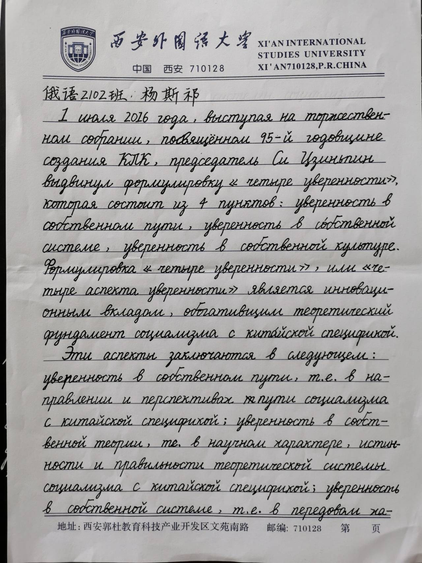 西安外国语大学
XI'AN INTERNATIONAL
STUDIES UNIVERSITY
中国 西安 710128
XI'AN710128,P.R.CHINA
俄语2102班. 杨斯祁
1 июля 2016 года, выступая на торжествен-
ном собрании, посвящённом 95-й годовщине
создания КПК, председатель Си Цзиньпин
выдвинул формулировку «четыре уверенности»,
которая состоит из 4 пунктов: уверенность в
собственном пути, уверенность в собственной
системе, уверенность в собственной культуре.
Формулировка «четыре уверенности», или «че-
тыре аспекта уверенности» является инноваци-
онным вкладом, обогатившим теоретический
фундамент социализма с китайской спецификой.
Эти аспекты заключаются в следующем:
уверенность в собственном пути, т.е. в на-
правлении и перспективах пути социализма
с китайской спецификой; уверенность в собст-
венной теории, те. в научном характере, истин-
ности и правильности теоретической системы
социализма с китайской спецификой; уверенность
в собственной системе, т.е. в передовом ха-
地址: 西安郭杜教育科技产业开发区文苑南路 邮编: 710128 第 页